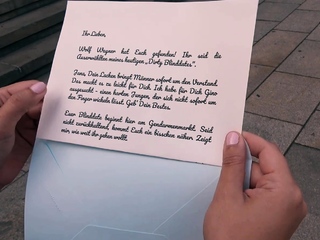 Ihr Lieben,
Wolf Wagner hat Euch gefunden! Ihr seid die
Auserwählten meines heutigen „Dirty Blinddates".
Jana, Dein Lachen bringt Männer sofort um den Verstand.
Das macht es so leicht für Dich. Ich habe für Dich Gino
ausgesucht - einen harten Jungen, der sich nicht sofort um
den Finger wickeln lässt. Geb' Dein Bestes.
Euer Blinddate beginnt hier am Gendarmenmarkt. Seid
nicht zurückhaltend, kommt Euch ein bisschen näher. Zeigt
mir, wie weit ihr gehen wollt.